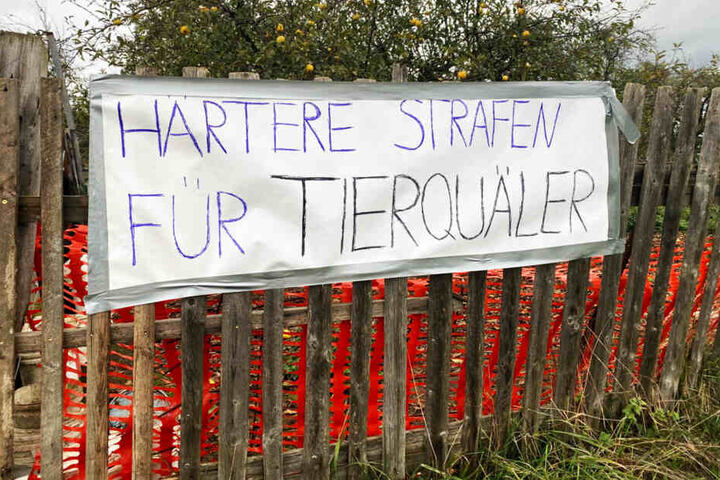 HÄRTERE STRAFEN
FÜR TIERQUÄLER